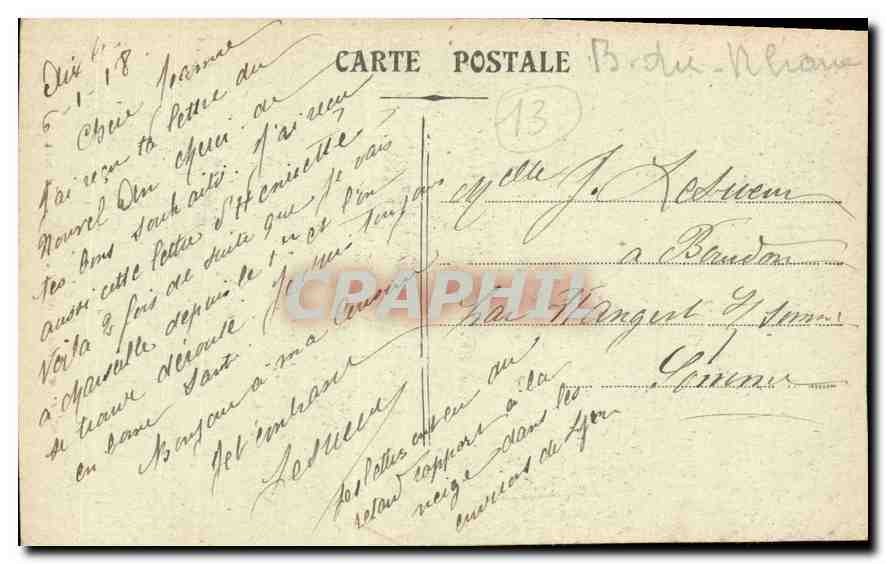 CARTE POSTALE
B. du-Rhone
13
Aix
6-1-18.
Chère Jeanne
J'ai reçu ta lettre du
Nouvel An merci de
tes bons souhaits. J'ai reçu
aussi cette lettre d'Henriette
Voila 2 fois de suite que je vais
à Marseille depuis le 1er et l'on
se trouve dérouté. Je suis toujours
en bonne santé.
Bonjour à ma cousine
Jesueur
Les lettres ont eu du
retard rapport à la
neige dans les
environs de Lyon
Melle J. Lesueur
à Baudon
par Hangest s/ somme
Somme
CPARHIL